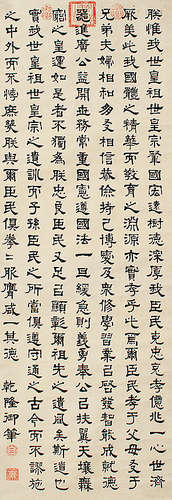 朕惟我世皇祖世皇宗肇國宏遠樹德深厚我臣民克忠克孝億兆一心世濟
厥美此我國體之精華而教育之淵源亦實存乎此爾臣民孝于父母友于
兄弟夫婦相和相信恭儉持己博愛及衆修學習業以啓發智能成就德
器進廣公益開世務常重國憲遵國法一旦緩急則義勇奉公以扶翼天壤無
窮之皇運如是者不獨為朕忠良臣民又足以顯彰爾祖先之遺風矣斯道也
實我世皇祖世皇宗之遺訓而子孫臣民之所當俱遵守通之古今而不謬施
之中外而不悖庶幾朕與爾臣民俱拳々服膺咸一其德 乾隆御筆